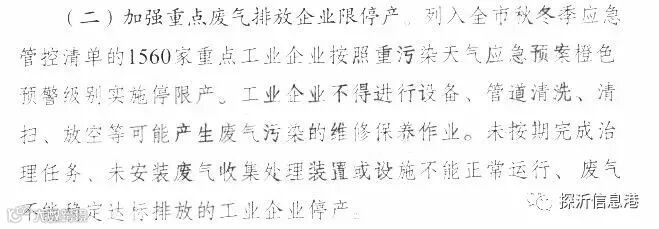 （二）加强重点废气排放企业限停产。列入全市秋冬季应急
管控清单的1560家重点工业企业按照重污染天气应急预案橙色
预警级别实施停限产。工业企业不得进行设备、管道清洗、清
扫、放空等可能产生废气污染的维修保养作业。未按期完成治
理任务、未安装废气收集处理装置或设施不能正常运行、废气
不能稳定达标排放的工业企业停产。
探沂信息港